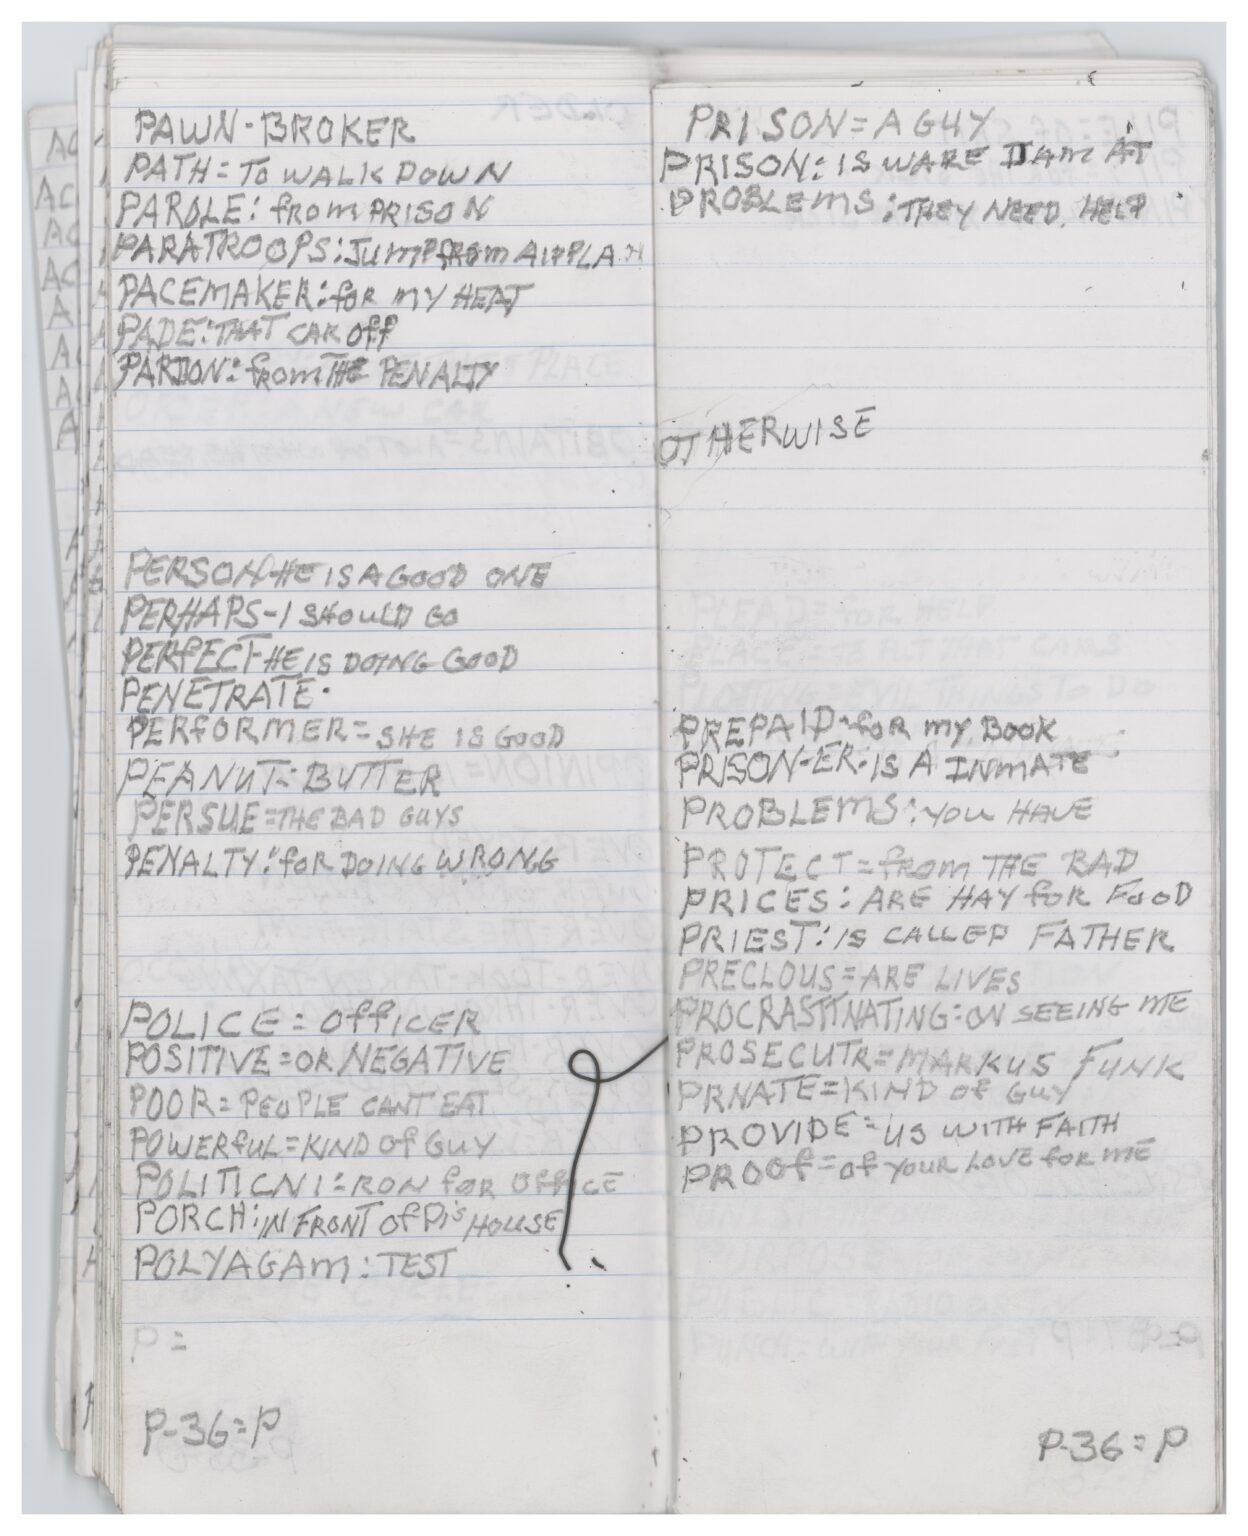 PAWN-BROKER
PATH=TO WALK DOWN
PAROLE: from PRISON
PARATROOPS: JUMP FROM AIPPLAN
PACEMAKER: for MY HEAT
PADE: THAT CAR Off
PARDON: from THE PENALTY
PERSON-HE IS A GOOD ONE
PERHAPS-I SHOULD GO
PERfECT-HE IS DOING GOOD
PENETRATE-
PERfORMER=SHE IS GOOD
PEANUT-BUTTER
PERSUE=THE BAD GUYS
PENALTY: for DOING WRONG
POLICE=OffICER
POSITIVE=OR NEGATIVE
POOR=PEOPLE CANT EAT
POWERfUL=KIND Of GUY
POLITICNI=RON for OffICE
PORCH: IN FRONT Of Di's HOUSE
POLYAGAM: TEST
P=
P-36=P
PRISON=A GUY
PRISON: IS WARE I AM AT
PROBLEMS: THEY NEED HELP
OTHERWISE
PLEAD=for HELP
PREPAID-for MY BOOK
PRISON-ER-IS A INMATE
PROBLEMS: YOU HAVE
PROTECT=from THE BAD
PRICES: ARE HAY for FOOD
PRIEST: IS CALLED FATHER
PRECLOUS=ARE LIVES
PROCRASTINATING: ON SEEING ME
PROSECUTR=MARKUS FUNK
PRNATE=KIND Of GUY
PROVIDE=US WITH FAITH
PROOf=Of YOUR LOVE for ME
P-36=P